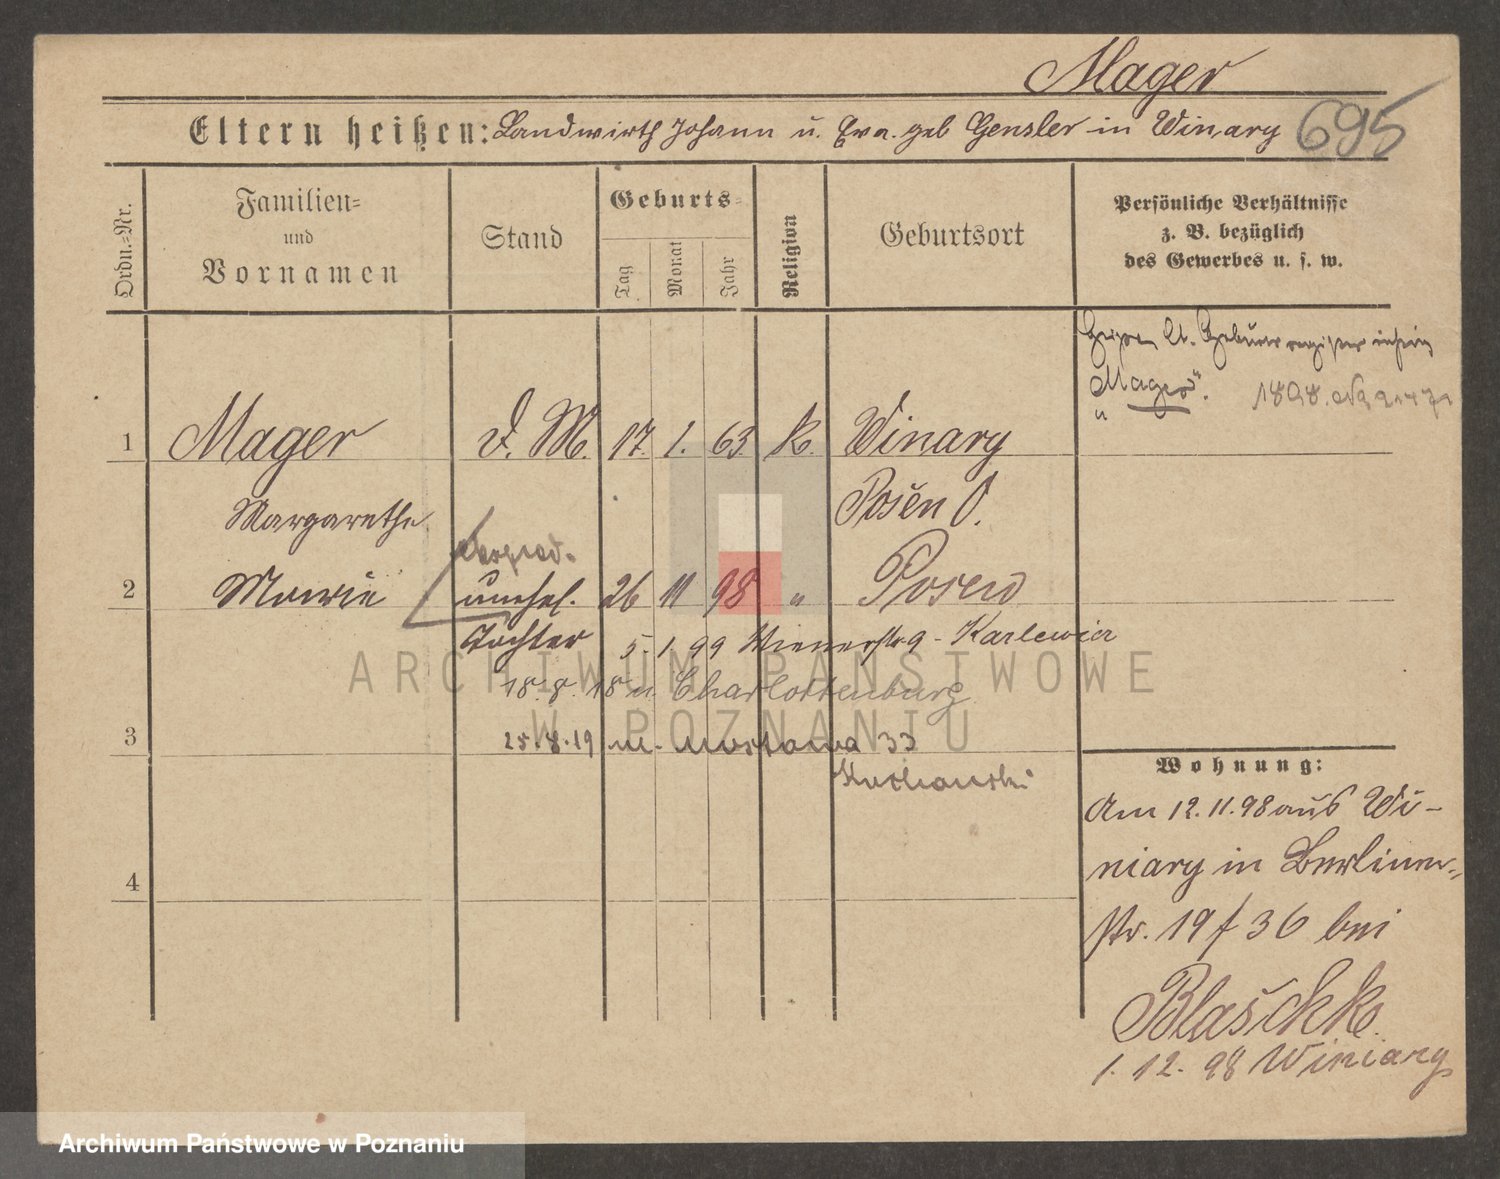 Mager
Eltern heißen: Landwirth Johann u. Eva geb Gensler in Winary 695
Ordn.=Nr.
Familien=
und
Vornamen
Stand
Geburts=
Tag
Monat
Jahr
Religion
Geburtsort
Persönliche Verhältnisse
z. B. bezüglich
des Gewerbes u. s. w.
"Mager".
1 Mager D. M. 17. 1. 63. K. Winary
Margarethe Posen O.
2 Marie unehel. 26 11 98 " Posen
Tochter 5. 1. 99 Wienerstr 9 - Karlewicz
18. 8. 18 n. Charlottenburg
3 25. 8. 19
4
Wohnung:
Am 12. 11. 98 aus Wi-
niary in Berliner-
str. 19 / 36 bei
Blaschke.
1. 12. 98 Winiary
ARCHIWUM PAŃSTWOWE
W POZNANIU
Archiwum Państwowe w Poznaniu